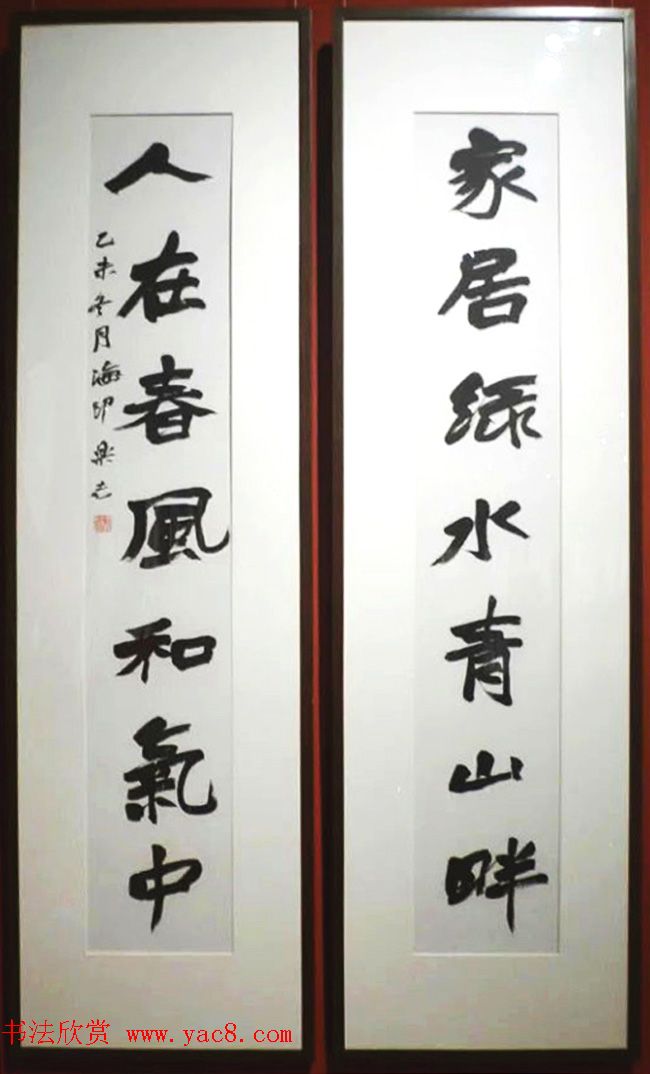 家居緑水青山畔
人在春風和氣中
乙未冬月海印樂志
书法欣赏 www.yac8.com